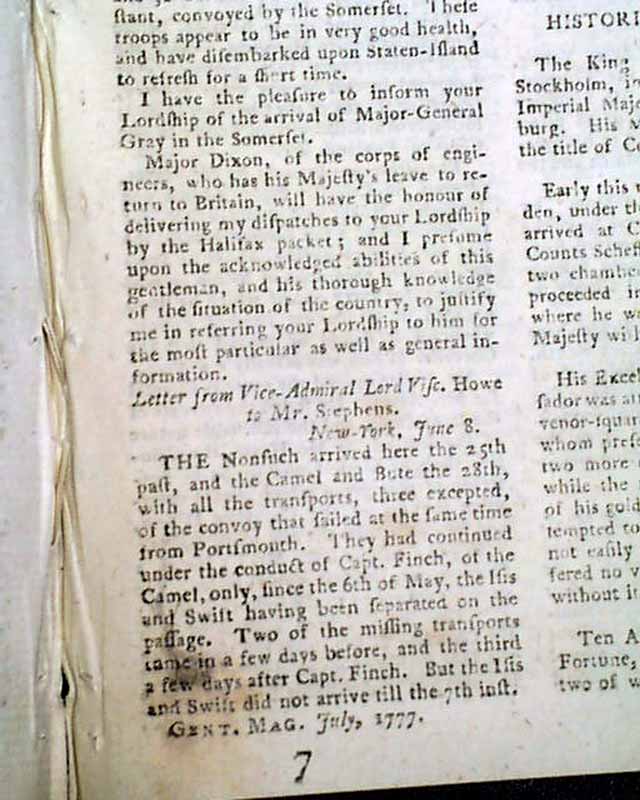 ſtant, convoyed by the Somerſet. Theſe
troops appear to be in very good health,
and have diſembarked upon Staten-Iſland
to refreſh for a ſhort time.
I have the pleaſure to inform your
Lordſhip of the arrival of Major-General
Gray in the Somerſet.
Major Dixon, of the corps of engi-
neers, who has his Majeſty's leave to re-
turn to Britain, will have the honour of
delivering my diſpatches to your Lordſhip
by the Halifax packet; and I preſume
upon the acknowledged abilities of this
gentleman, and his thorough knowledge
of the ſituation of the country, to juſtify
me in referring your Lordſhip to him for
the moſt particular as well as general in-
formation.
Letter from Vice-Admiral Lord Viſc. Howe
to Mr. Stephens.
New-York, June 8.
THE Nonſuch arrived here the 25th
paſt, and the Camel and Bute the 28th,
with all the tranſports, three excepted,
of the convoy that ſailed at the ſame time
from Portſmouth. They had continued
under the conduct of Capt. Finch, of the
Camel, only, ſince the 6th of May, the Iſis
and Swift having been ſeparated on the
paſſage. Two of the miſſing tranſports
came in a few days before, and the third
a few days after Capt. Finch. But the Iſis
and Swift did not arrive till the 7th inſt.
GENT. MAG. July, 1777.
7
HISTORI
The King
Stockholm, in
Imperial Maje
burg. His M
the title of Co
Early this
den, under th
arrived at C
Counts Scheff
two chambe
proceeded in
where he wa
Majeſty wi
His Excel
ſador was
venor-ſquar
whom preſe
two more
while the
of his gold
tempted to
not eaſily
fered no v
without it
Ten A
Fortune,
two of w